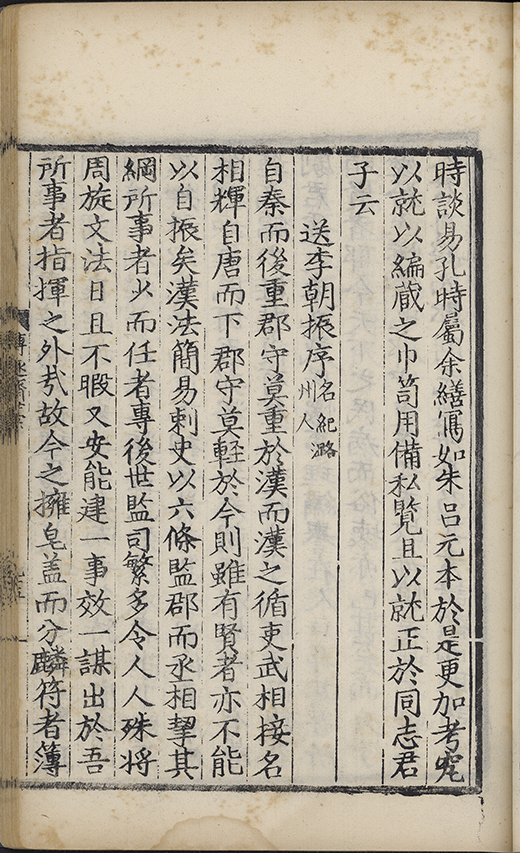 時談易孔時屬余繕寫如朱呂元本於是更加考究
以就以編蔵之巾笥用備私覧且以就正於同志君
子云
送李朝振序名紀潞州人
自秦而後重郡守莫重於漢而漢之循吏武相接名
相輝自唐而下郡守莫軽於今則雖有賢者亦不能
以自振矣漢法簡易刺史以六條監郡而丞相挈其
綱所事者少而任者專後世監司繁多令人人殊将
周旋文法日且不暇又安能建一事效一謀出於吾
所事者指揮之外㢤故今之擁皂盖而分麟符者簿